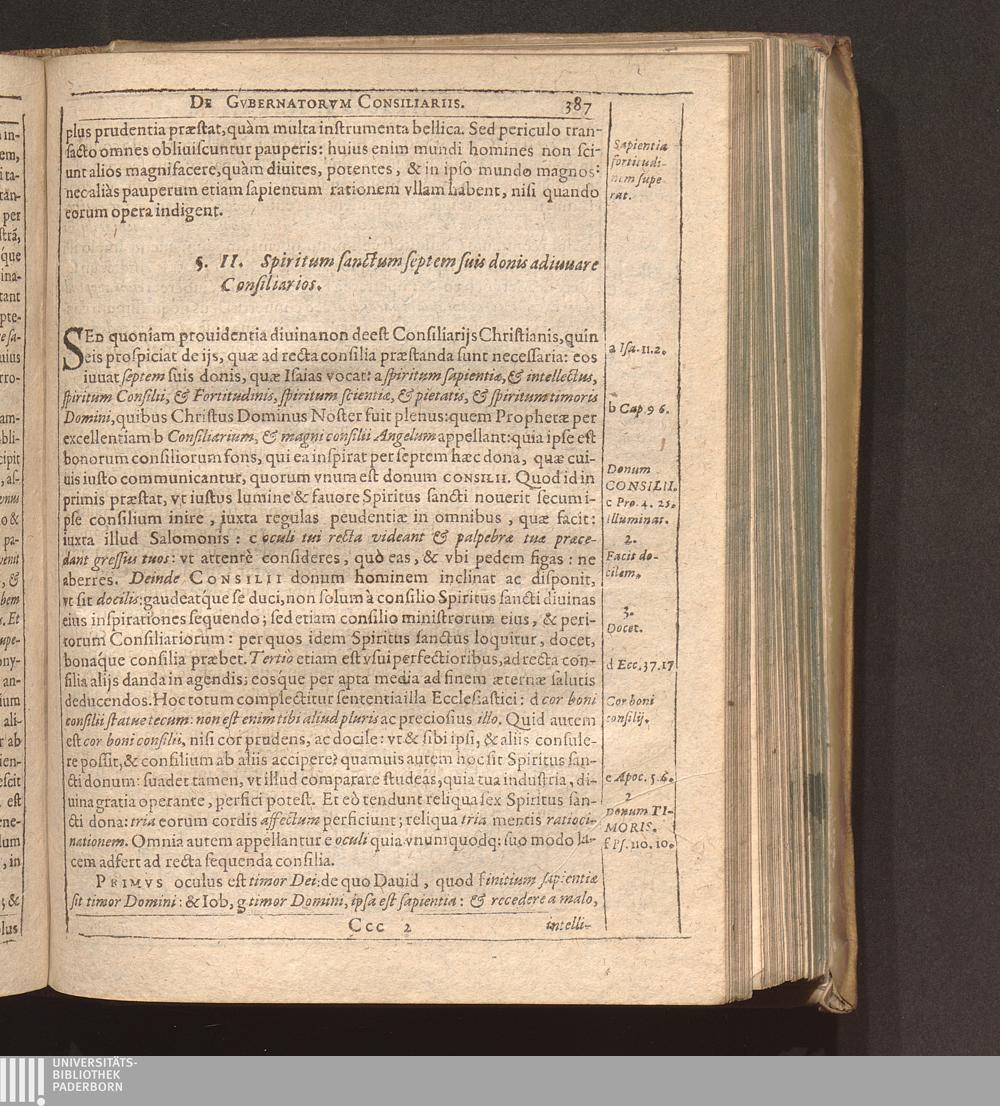 De Gvbernatorvm Consiliariis. 387
plus prudentia præstat, quàm multa instrumenta bellica. Sed periculo tran-
sacto omnes obliuiscuntur pauperis: huius enim mundi homines non sci-
unt alios magnifacere, quàm diuites, potentes, & in ipso mundo magnos:
nec aliàs pauperum etiam sapientum rationem vllam habent, nisi quando
eorum opera indigent.
Sapientia
fortitudi-
nem supe
rat.
§. II. Spiritum sanctum septem suis donis adiuuare
Consiliarios.
SEd quoniam prouidentia diuina non deest Consiliarijs Christianis, quin
eis prospiciat de ijs, quæ ad recta consilia præstanda sunt necessaria: eos
iuuat septem suis donis, quæ Isaias vocat: a spiritum sapientiæ, & intellectus,
spiritum Consilii, & Fortitudinis, spiritum scientiæ, & pietatis, & spiritum timoris
Domini, quibus Christus Dominus Noster fuit plenus: quem Prophetæ per
excellentiam b Consiliarium, & magni consilii Angelum appellant: quia ipse est
bonorum consiliorum fons, qui ea inspirat per septem hæc dona, quæ cui-
uis iusto communicantur, quorum vnum est donum consilii. Quod id in
primis præstat, vt iustus lumine & fauore Spiritus sancti nouerit secum i-
pse consilium inire, iuxta regulas peudentiæ in omnibus, quæ facit:
iuxta illud Salomonis: c oculi tui recta videant & palpebræ tuæ præce-
dant gressus tuos: vt attentè consideres, quò eas, & vbi pedem figas: ne
aberres. Deinde Consilii donum hominem inclinat ac disponit,
vt sit docilis: gaudeatq́ue se duci, non solum à consilio Spiritus sancti diuinas
eius inspirationes sequendo; sed etiam consilio ministrorum eius, & peri-
torum Consiliariorum: per quos idem Spiritus sanctus loquitur, docet,
bonaq́ue consilia præbet. Tertiò etiam est vsui perfectioribus, ad recta con-
silia alijs danda in agendis; eosque per apta media ad finem æternæ salutis
deducendos. Hoc totum complectitur sententia illa Ecclesiastici: d cor boni
consilii statue tecum: non est enim tibi aliud pluris ac preciosius illo. Quid autem
est cor boni consilii, nisi cor prudens, ac docile: vt & sibi ipsi, & aliis consule-
re possit, & consilium ab aliis accipere? quamuis autem hoc sit Spiritus san-
cti donum: suadet tamen, vt illud comparare studeas, quia tua industria, di-
uina gratia operante, perfici potest. Et eò tendunt reliqua sex Spiritus san-
cti dona: tria eorum cordis affectum perficiunt; reliqua tria mentis ratioci-
nationem. Omnia autem appellantur e oculi quia vnumquodq: suo modo lu-
cem adfert ad recta sequenda consilia.
Primvs oculus est timor Dei: de quo Dauid, quod f initium sapientiæ
sit timor Domini: & Iob, g timor Domini, ipsa est sapientia: & recedere a malo,
a Isa. 11.2.
b Cap. 9 6.
Donum
CONSILII.
c Pro. 4. 25.
illuminat.
2.
Facit do-
cilem.
3.
Docet.
d Ecc. 37.17
Cor boni
consilij.
e Apoc. 5.6.
2
Donum TI-
MORIS.
f Ps. 110. 10.
Ccc 2 intelli-
UNIVERSITÄTS-
BIBLIOTHEK
PADERBORN